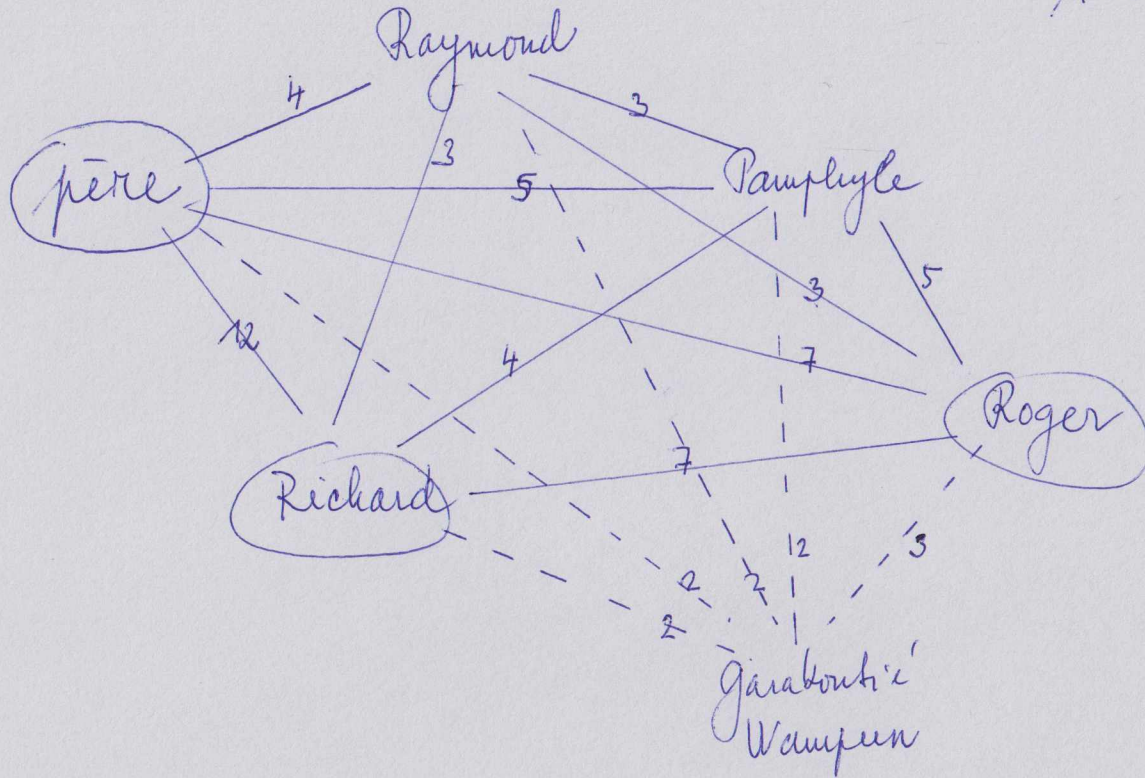 Raymond
4
3
père
3
5
Pamphyle
5
3
12
4
7
Roger
Richard
7
12
3
2
2
2
Garakontié
Wampun